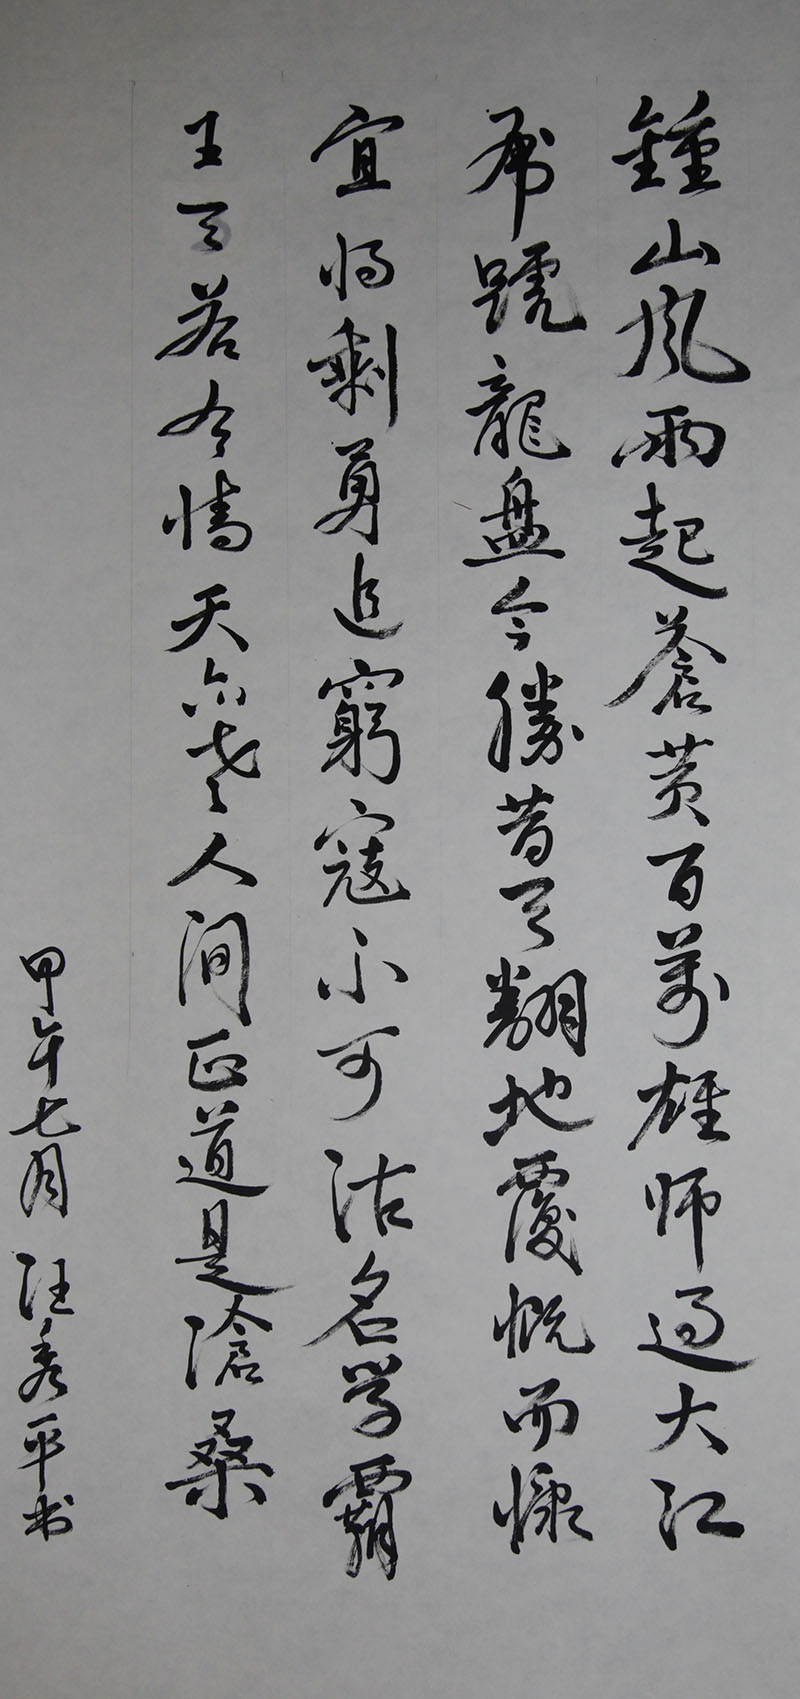 鍾山风雨起蒼黄百萬雄师過大江
虎踞龍盘今勝昔天翻地覆慨而慷
宜将剩勇追窮寇不可沽名学霸
王天若有情天亦老人间正道是滄桑
甲午七月汪秀平书